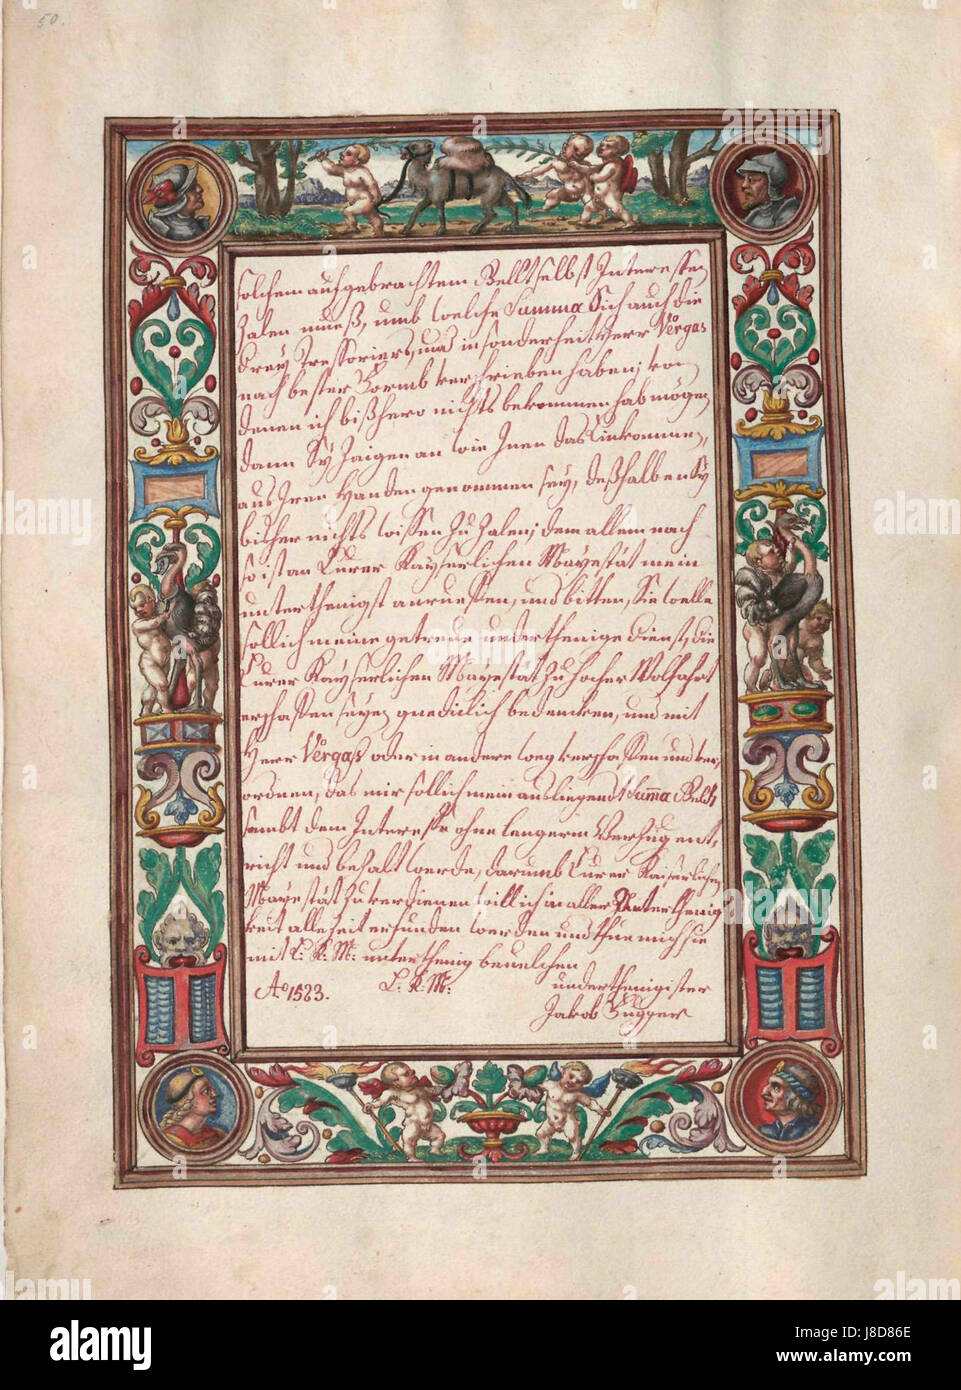 50.
solchem aufgebrachtem Gellt selbst Interessen
Zalen mueß, umb welche Summa Sich auch die
drey Tressoriers, und in sonderheit Herr Vörgas
nach bester Formb verschrieben haben, von
denen ich bißhero nichts bekommen hab mögen,
dann Sy Zaigen an wie Inen das Einkommen,
aus Iren Handen genommen sey, deßhalben Sy
bisher nichts wissen Zu Zalen; dem allem nach
so ist an Eurer Kayserlichen Mayestät mein
unterthenigst anrueffen, und bitten, Sie welle
sollich meine getreue underthenige Dienst, die
Eurer Kayserlichen Mayestät Zu hocher Wolfart
erschossen seyen gnediclich bedencken, und mit
Herr Vörgas oder in andere weg verschaffen und ver,
ordnen, das mir sollich mein ausliegendt Summa Geldt,
sambt dem Interesse ohne lengerm Verzug ent,
richt und bezalt werde, darumb Eurer Kaiserlichen
Mayestät Zu verdienen will ich in aller Unterthenig
keit alle Zeit erfunden werden und thue mich sie
mit E. K. M: unterthenig bevelchen
Ao 1523. E. K. M: underthenigister
Jakob Fugger
alamy
Image ID: J8D86E
www.alamy.com